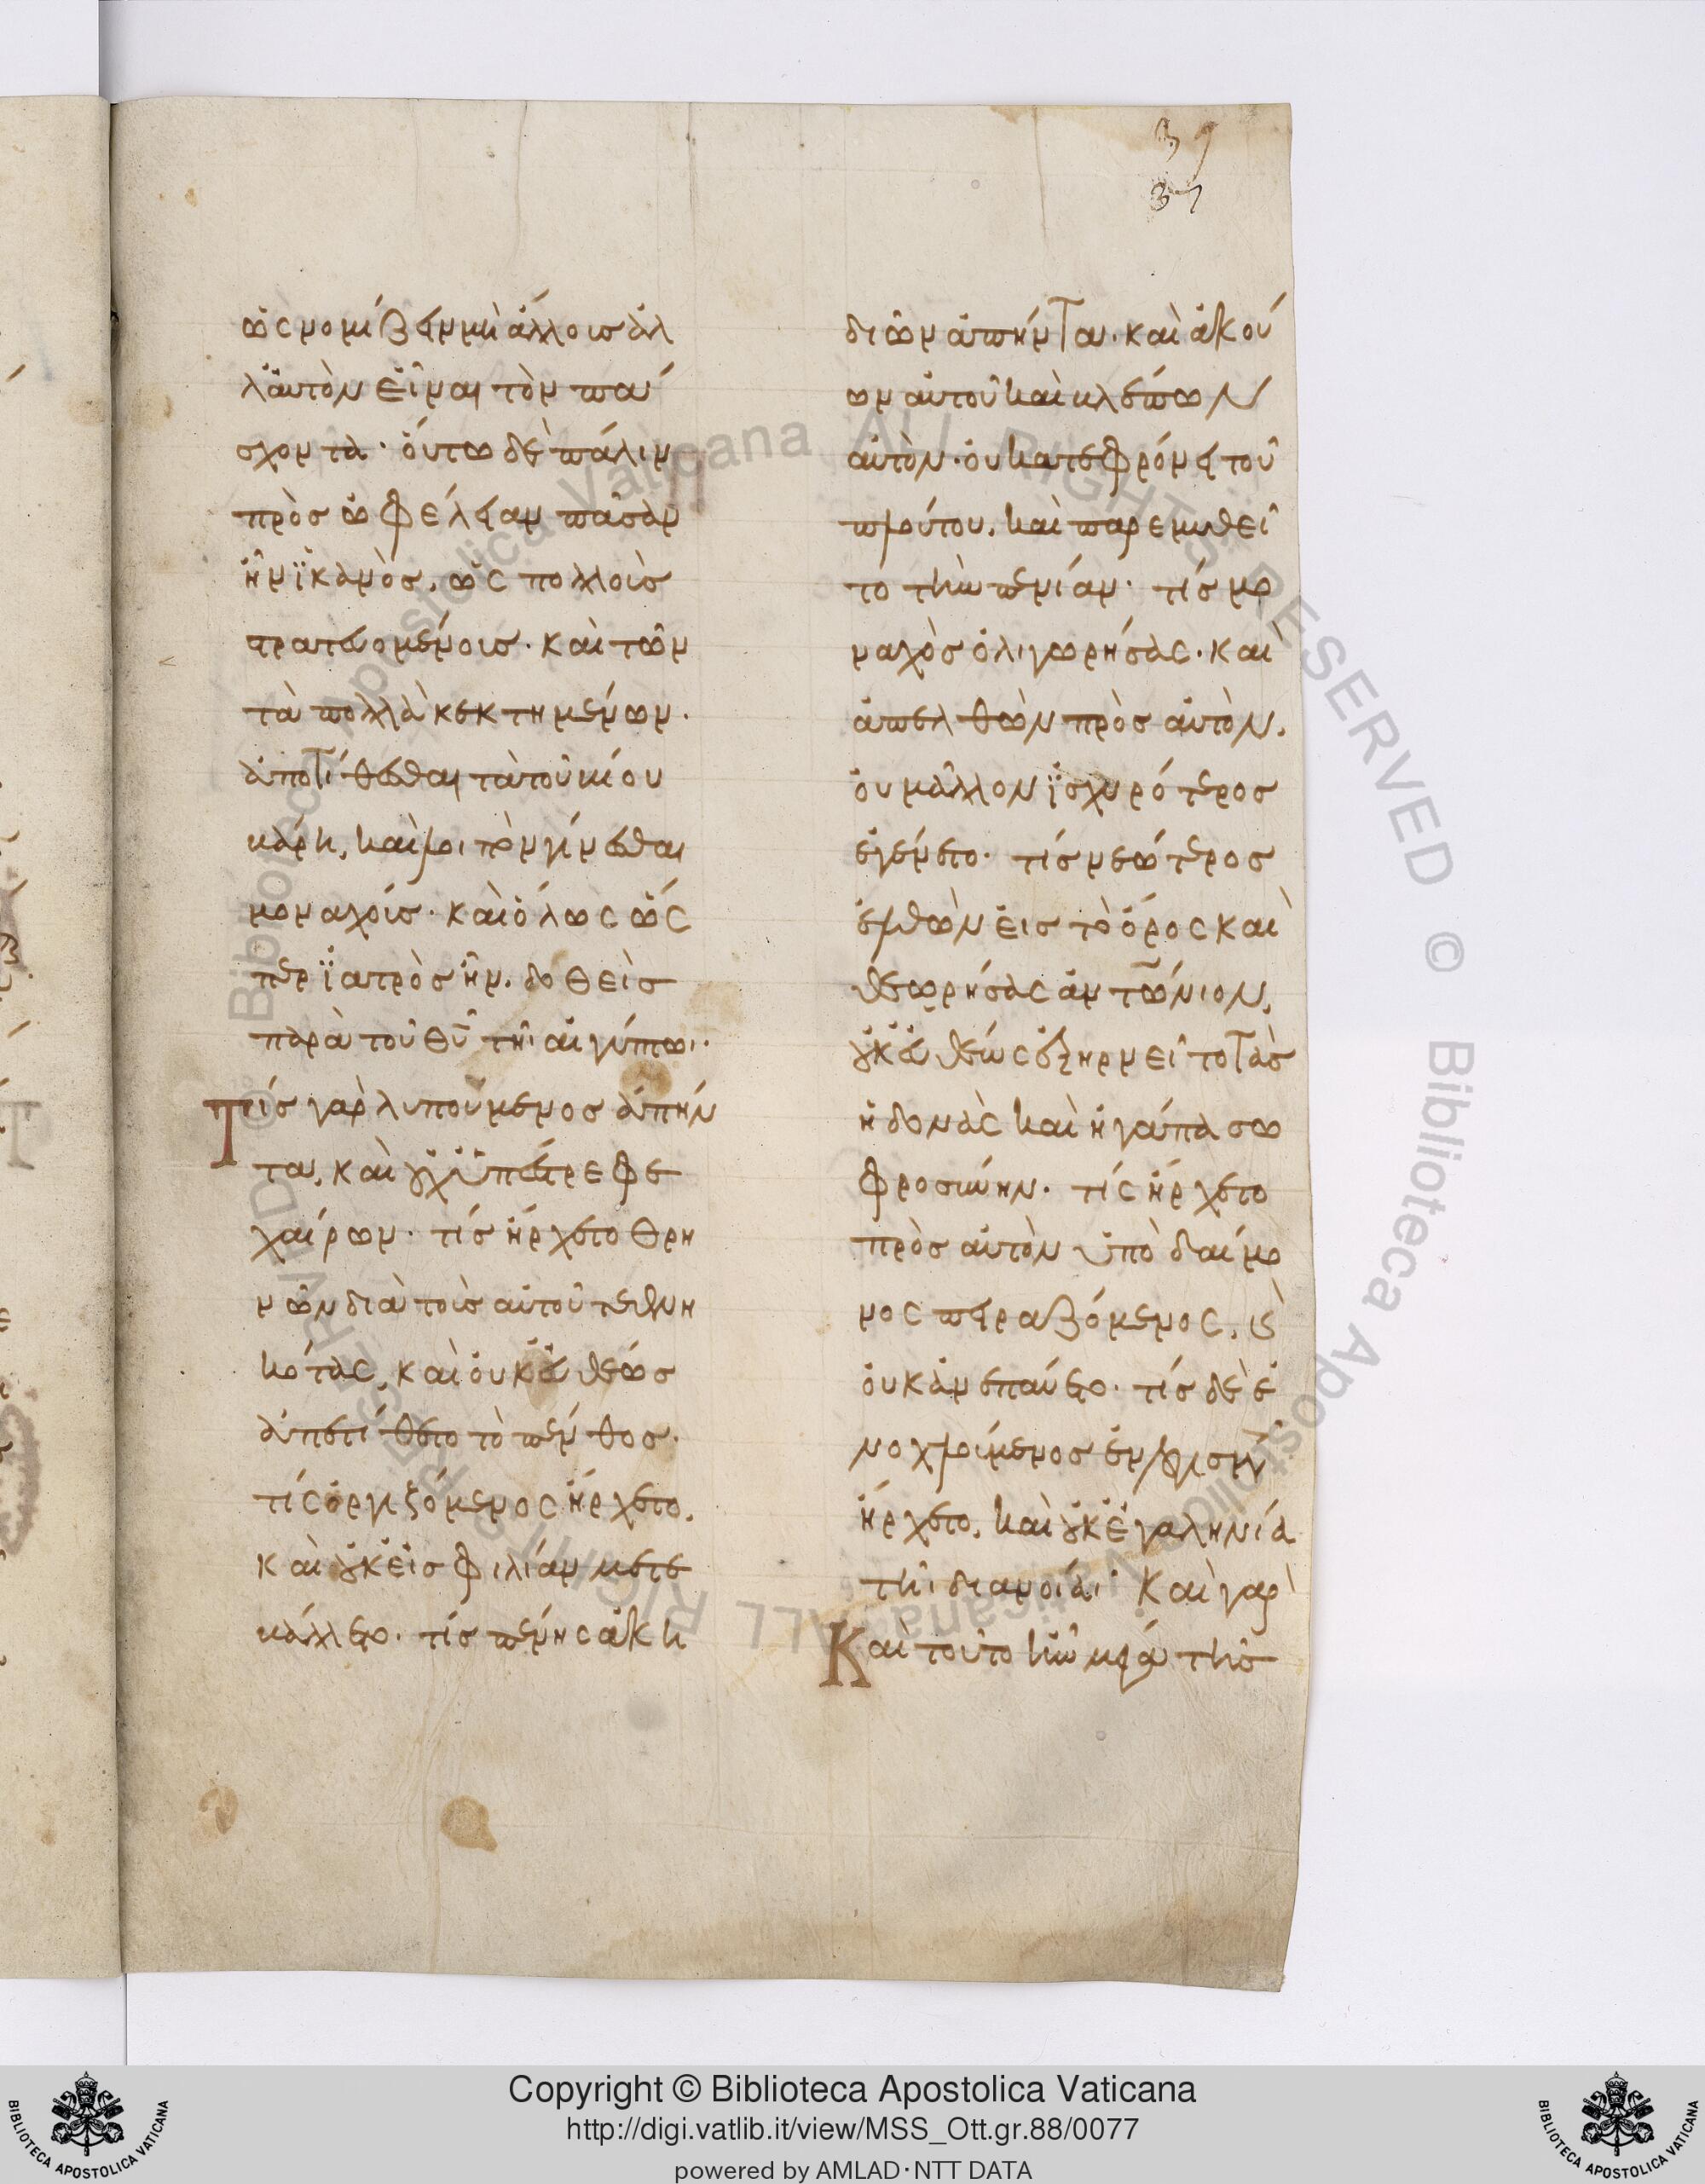 39
37
ὡς νομίζειν μὴ ἄλλους ἀλ
λ᾽ αὐτὸν εἶναι τὸν πά
σχοντα· οὕτω δὲ πάλιν
πρὸς ὠφέλειαν πᾶσιν
ἦν ἱκανὸς, ὡς πολλοὺς
στρατευομένους· καὶ τῶν
τὰ πολλὰ κεκτημένων·
ἀποτίθεσθαι τὰ τοῦ βίου
βάρη, καὶ λοιπὸν γίνεσθαι
μοναχούς· καὶ ὅλως ὥς
περ ἰατρὸς ἦν. δοθεὶς
παρὰ τοῦ θυ τῇ αἰγύπτωι·
Τίς γὰρ λυπούμενος ἀπήν
τα, καὶ οὐχ ὑπέστρεφε
χαίρων· τίς ἤρχετο θρη
νῶν διὰ τοὺς αὐτοῦ τεθνη
κότας, καὶ οὐκ εὐθέως
ἀπετίθετο τὸ πένθος·
τίς ὀργιζόμενος ἤρχετο,
καὶ οὐκ εἰς φιλίαν μετε
βάλλετο· τίς πένης ἀκη
διῶν ἀπήντα· καὶ ἀκού
ων αὐτοῦ καὶ βλέπων
αὐτὸν· οὐ κατεφρόνει τοῦ
πλούτου, καὶ παρεμυθεῖ
το τὴν πενίαν· τίς μο
ναχὸς ὀλιγωρήσας· καὶ
ἀπελθὼν πρὸς αὐτὸν,
οὐ μᾶλλον ἰσχυρότερος
ἐγένετο· τίς νεώτερος
ἐλθὼν εἰς τὸ ὄρος καὶ
θεωρήσας ἀντώνιον,
οὐκ εὐθέως ἐξηρνεῖτο τὰς
ἡδονὰς καὶ ἠγάπα σω
φροσύνην· τίς ἤρχετο
πρὸς αὐτὸν ὑπὸ δαίμο
νος πειραζόμενος, καὶ
οὐκ ἀνεπαύετο· τίς δὲ ἐ
νοχλούμενος ἐν λογισμοῖς
ἤρχετο, καὶ οὐκ ἐγαληνία
τῇ διανοίαι· Καὶ γὰρ
Καὶ τοῦτο ἦν μέγα τῆς
Copyright © Biblioteca Apostolica Vaticana
http://digi.vatlib.it/view/MSS_Ott.gr.88/0077
powered by AMLAD·NTT DATA
BIBLIOTECA APOSTOLICA VATICANA
BIBLIOTECA APOSTOLICA VATICANA